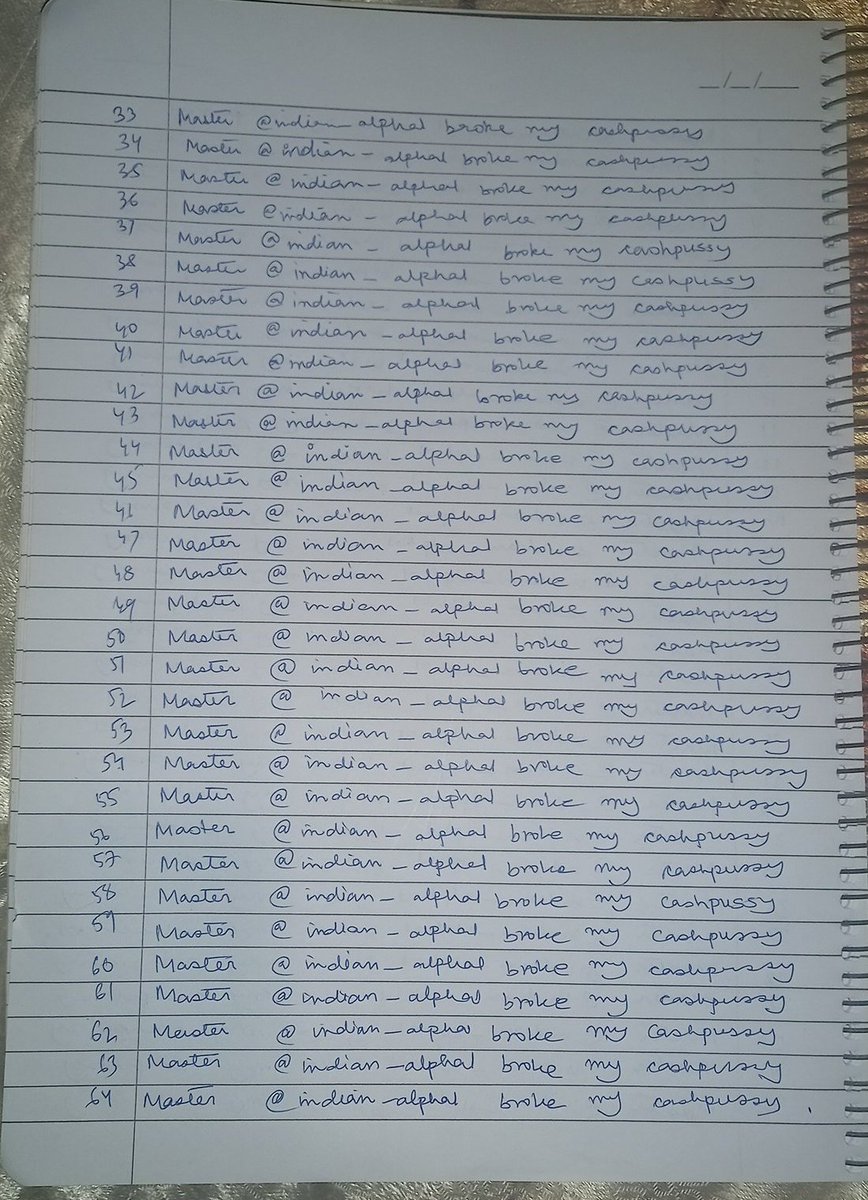 _/_/__
33 Master @indian_alphal broke my cashpussy
34 Master @ indian_alphal broke my cashpussy
35 Master @ indian_alphal broke my cashpussy
36 Master @indian_alphal broke my cashpussy
37 Master @ indian_alphal broke my cashpussy
38 Master @ indian_alphal broke my cashpussy
39 Master @ indian_alphal broke my cashpussy
40 Master @ indian_alphal broke my cashpussy
41 Master @indian_alphal broke my cashpussy
42 Master @ indian_alphal broke my cashpussy
43 Master @ indian_alphal broke my cashpussy
44 Master @ indian_alphal broke my cashpussy
45 Master @ indian_alphal broke my cashpussy
41 Master @ indian_alphal broke my cashpussy
47 Master @ indian_alphal broke my cashpussy
48 Master @ indian_alphal broke my cashpussy
49 Master @ indian_alphal broke my cashpussy
50 Master @ indian_alphal broke my cashpussy
51 Master @ indian_alphal broke my cashpussy
52 Master @ indian_alphal broke my cashpussy
53 Master @ indian_alphal broke my cashpussy
54 Master @ indian_alphal broke my cashpussy
55 Master @ indian_alphal broke my cashpussy
56 Master @ indian_alphal broke my cashpussy
57 Master @ indian_alphal broke my cashpussy
58 Master @ indian_alphal broke my cashpussy
59 Master @ indian_alphal broke my cashpussy
60 Master @ indian_alphal broke my cashpussy
61 Master @ indian_alphal broke my cashpussy
62 Master @ indian_alpha broke my Cashpussy
63 Master @ indian_alphal broke my cashpussy
64 Master @ indian_alphal broke my cashpussy.